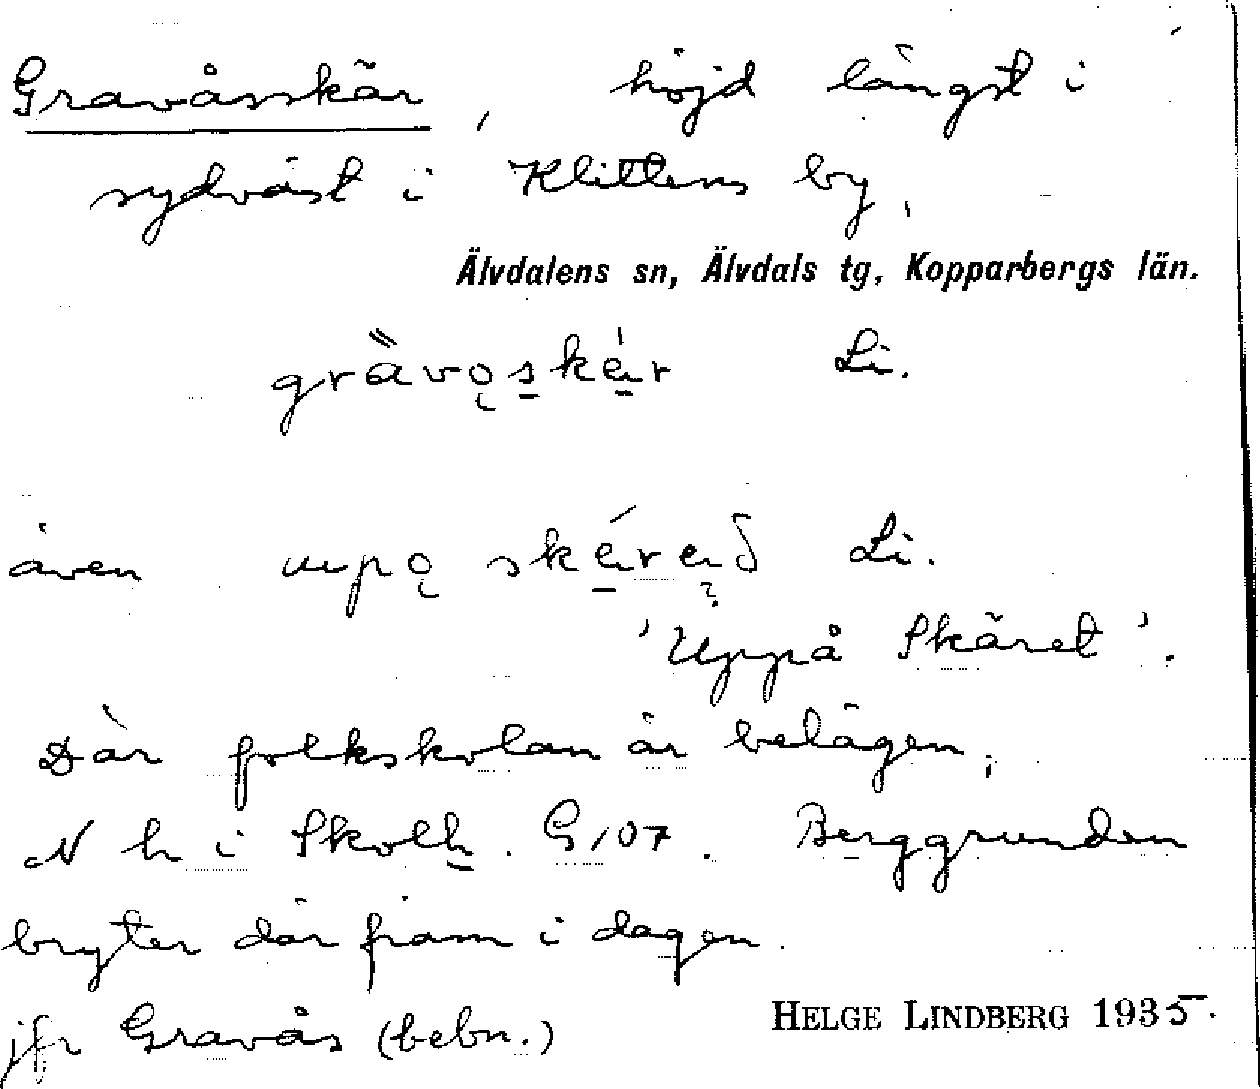 Gravåsskär, höjd längst i
sydväst i Klittens by,
Älvdalens sn, Älvdals tg, Kopparbergs län.
grävo̜skér Li.
även upo̜ skérenð Li.
'Uppå Skäret'.
Där folkskolan är belägen,
N h i Skolh. G107. Berggrunden
bryter där fram i dagen.
jfr Gravås (bebn.)
HELGE LINDBERG 1935.